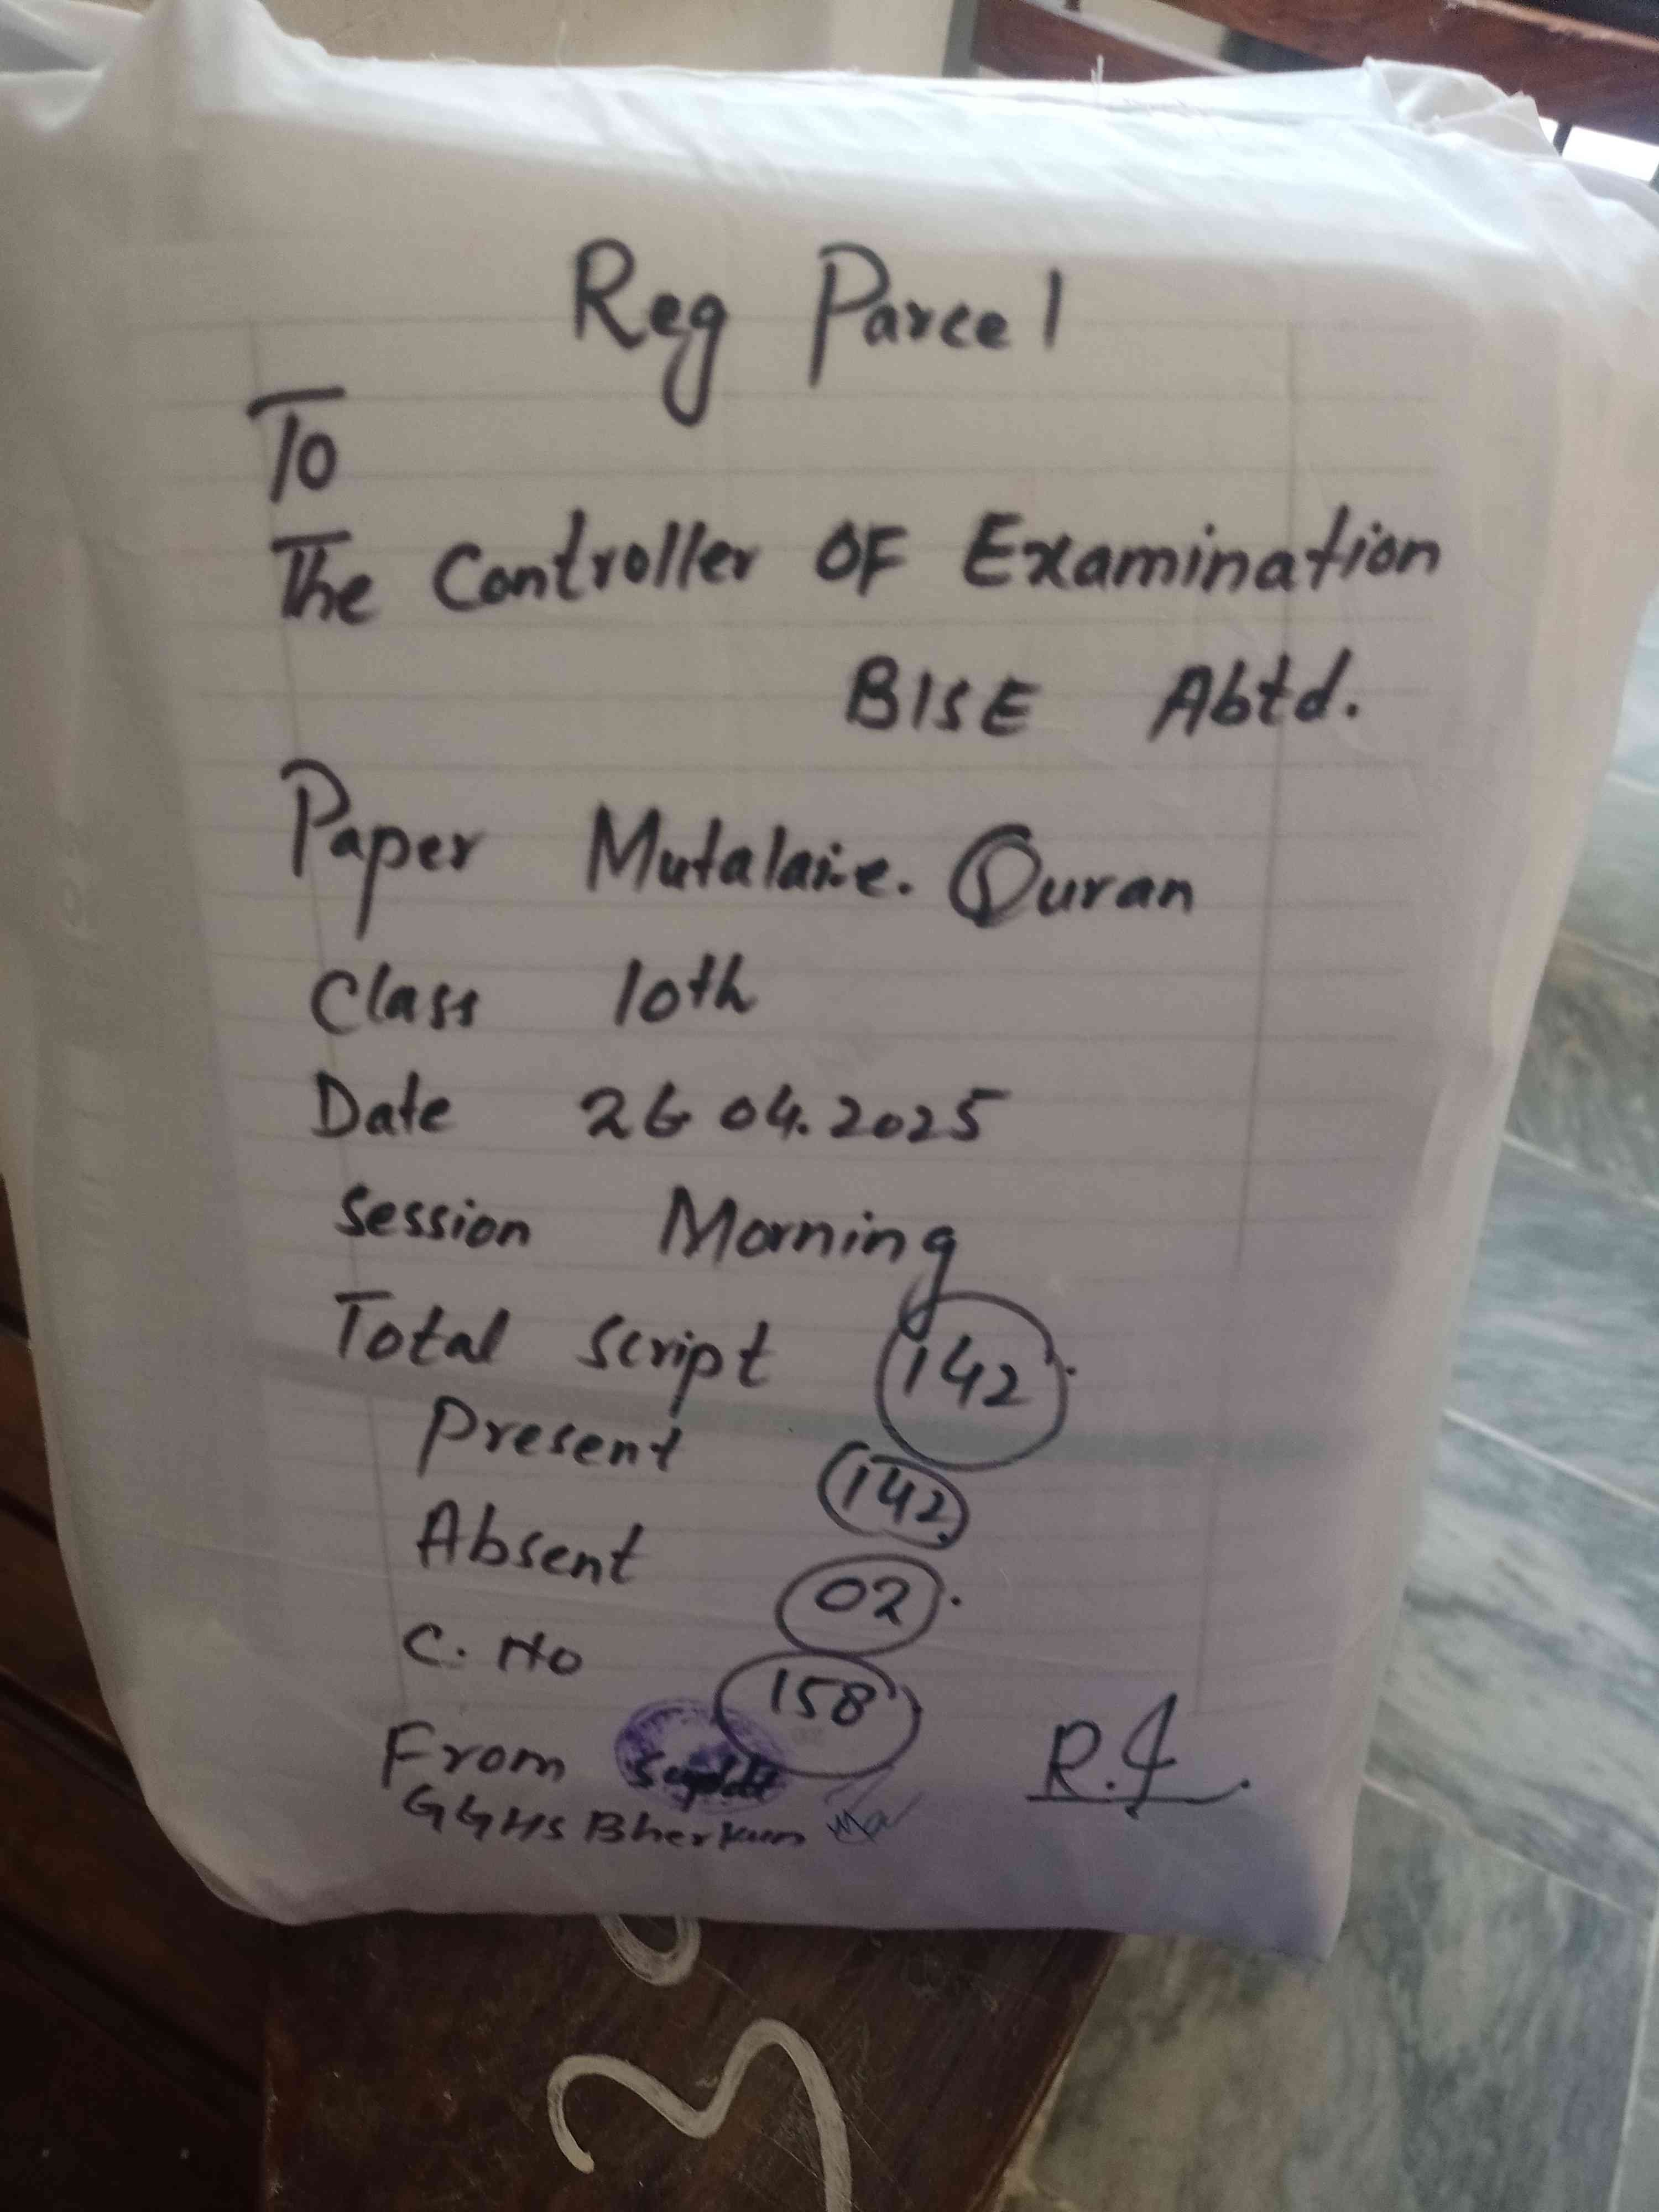 Reg Parcel
To
The Controller OF Examination
BISE Abtd.
Paper Mutalaie. Quran
Class 10th
Date 26 04.2025
Session Morning
Total Script 142
Present 142
Absent 02
C. No 158
From Supdtt
GGHS Bherkun
R.I.